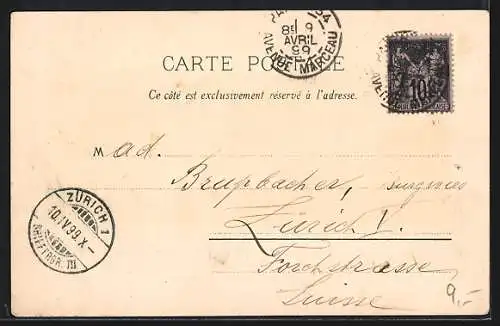 PARIS 34
8E 9
AVRIL
99
AVENUE MARCEAU
CARTE POSTALE
Ce côté est exclusivement réservé à l'adresse.
10
M ad.
Brupbacher,
Zürich I.
Forchstrasse
Suisse
ZÜRICH 1
10.IV.99.X-
BRIEFTRGR. III
9.-